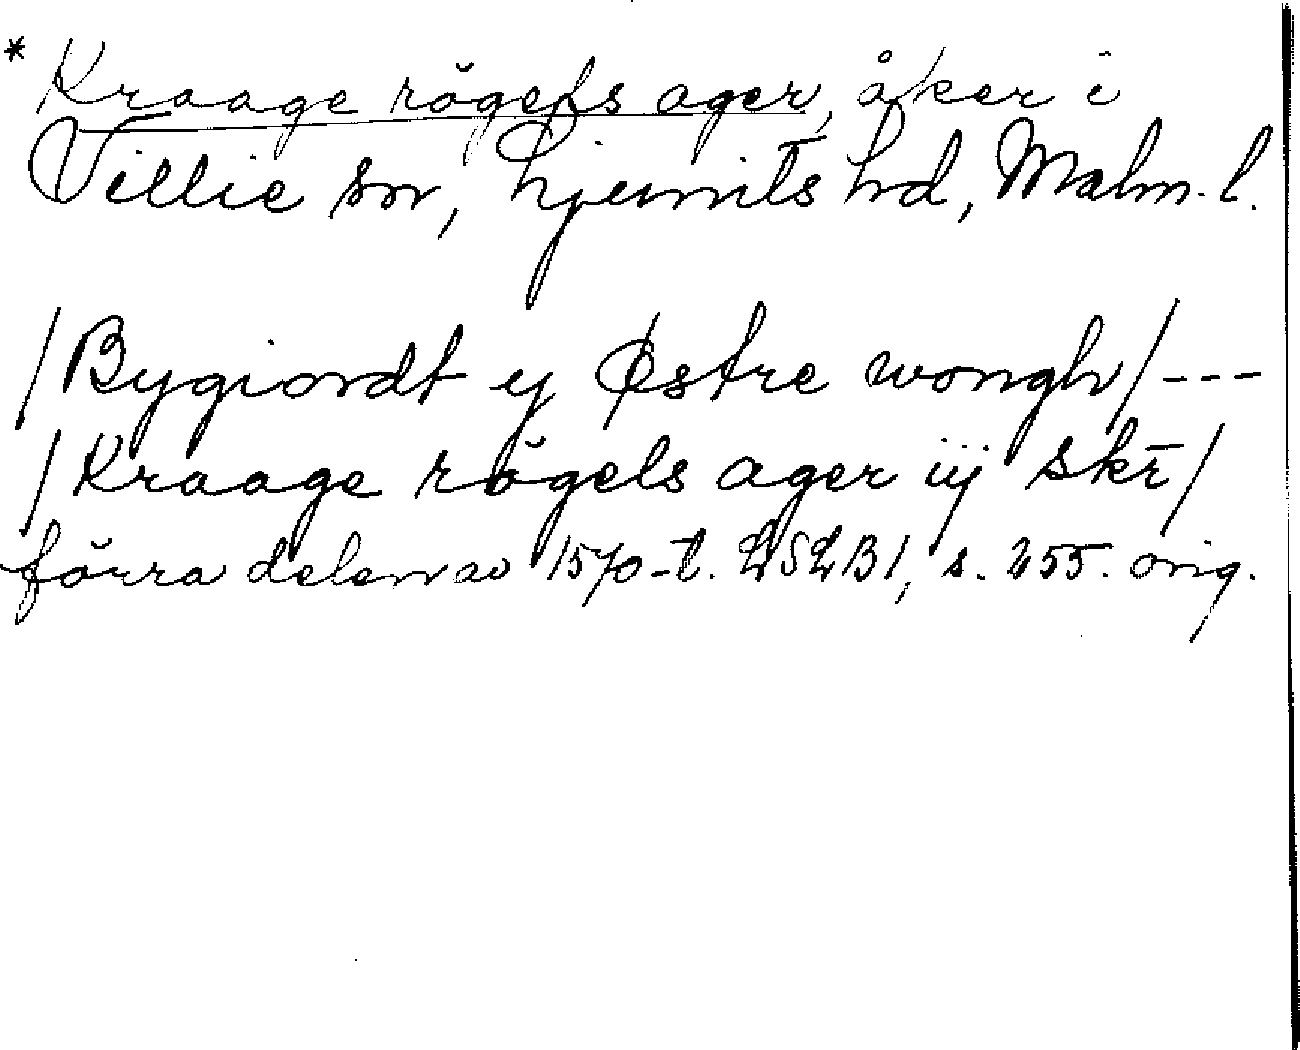 * Kraage rögels ager, åker i
Villie sn, Ljunits hd, Malm. l.
/Bygiordt ij Østre wongh/---
/Kraage rögels ager iij skr̄/
förra delen av 1570-t. LSLB1, s. 255. orig.